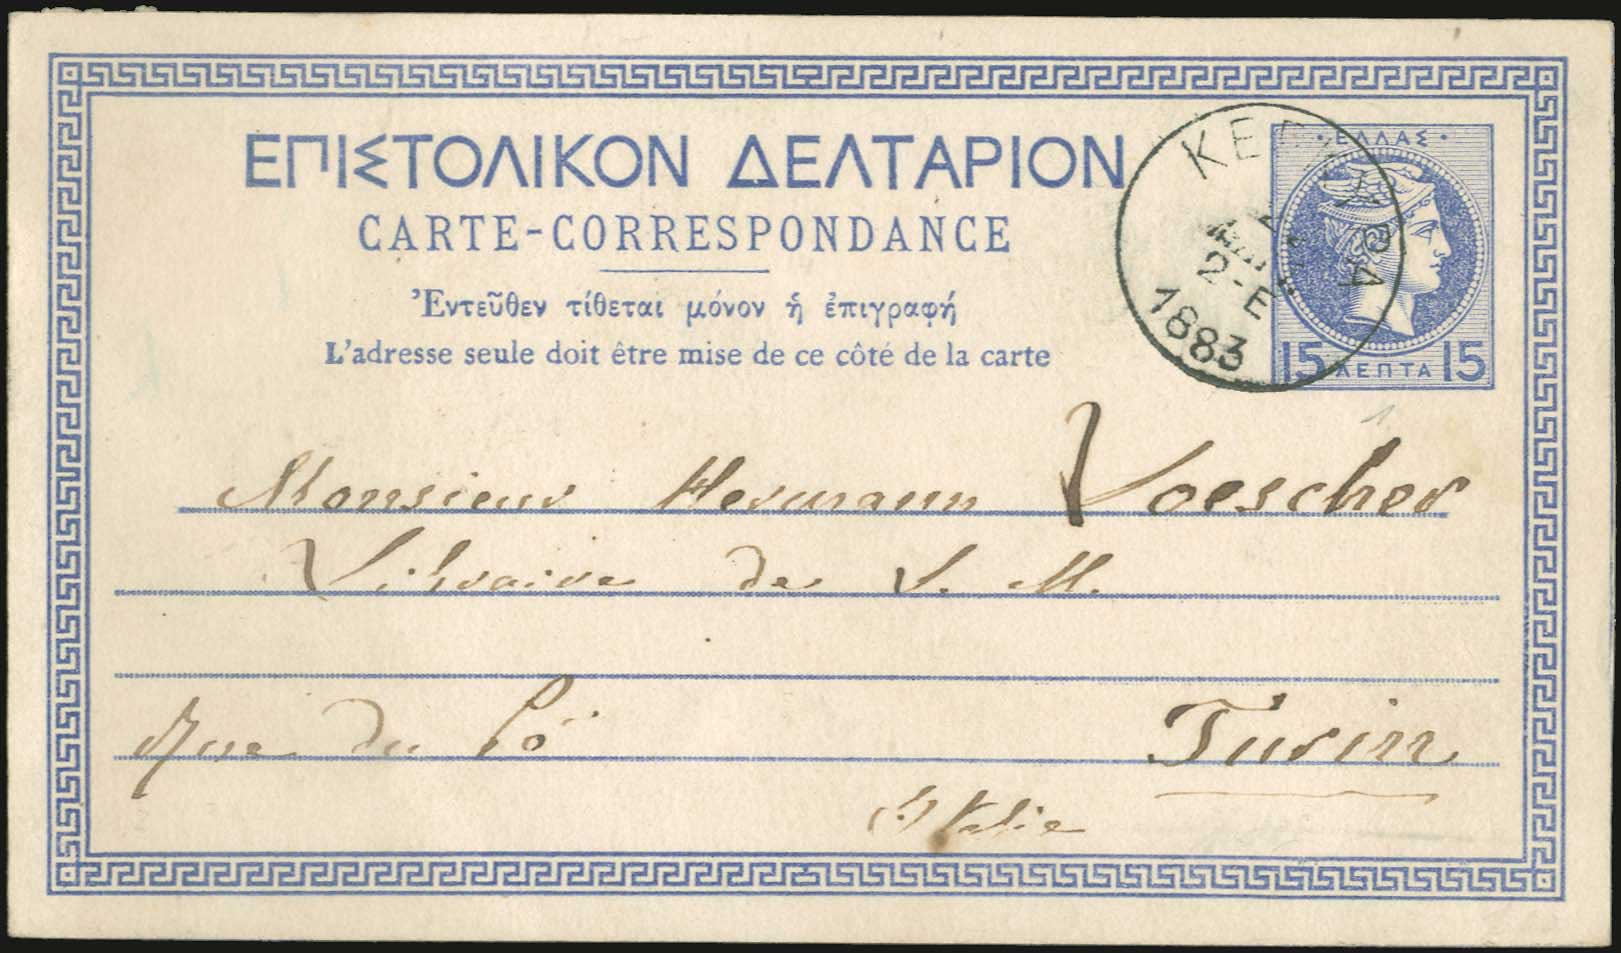 ΕΠΙΣΤΟΛΙΚΟΝ ΔΕΛΤΑΡΙΟΝ
CARTE-CORRESPONDANCE
Ἐντεῦθεν τίθεται μόνον ἡ ἐπιγραφή
L'adresse seule doit être mise de ce côté de la carte
·ΕΛΛΑΣ·
15 ΛΕΠΤΑ 15
ΚΕΡΚΥΡΑ
2-Ε
1883
1
Monsieur Hermann Loescher
Libraire de S. M.
Rue du Pô Turin
Italie